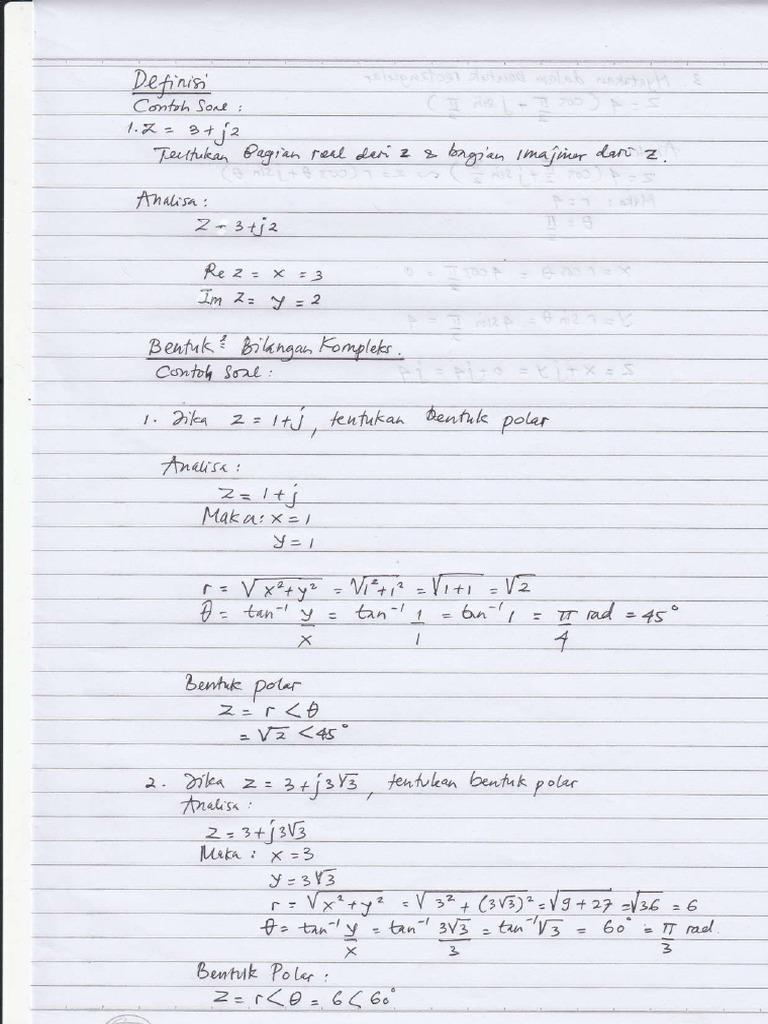 Definisi
Contoh Soal :
1. Z = 3 + j2
Tentukan Bagian real dari z & bagian imajiner dari Z.
Analisa :
Z = 3 + j2
Re z = x = 3
Im z = y = 2
Bentuk² Bilangan Kompleks.
Contoh Soal :
1. Jika z = 1+j, tentukan bentuk polar
Analisa :
Z = 1 + j
Maka : x = 1
y = 1
r = √(x² + y²) = √(1² + 1²) = √(1+1) = √2
θ = tan⁻¹ y/x = tan⁻¹ 1/1 = tan⁻¹ 1 = π/4 rad = 45°
Bentuk polar
Z = r < θ
= √2 < 45°
2. Jika z = 3 + j3√3, tentukan bentuk polar
Analisa :
Z = 3 + j3√3
Maka : x = 3
y = 3√3
r = √(x² + y²) = √(3² + (3√3)²) = √(9 + 27) = √36 = 6
θ = tan⁻¹ y/x = tan⁻¹ 3√3/3 = tan⁻¹ √3 = 60° = π/3 rad.
Bentuk Polar :
Z = r < θ = 6 < 60°